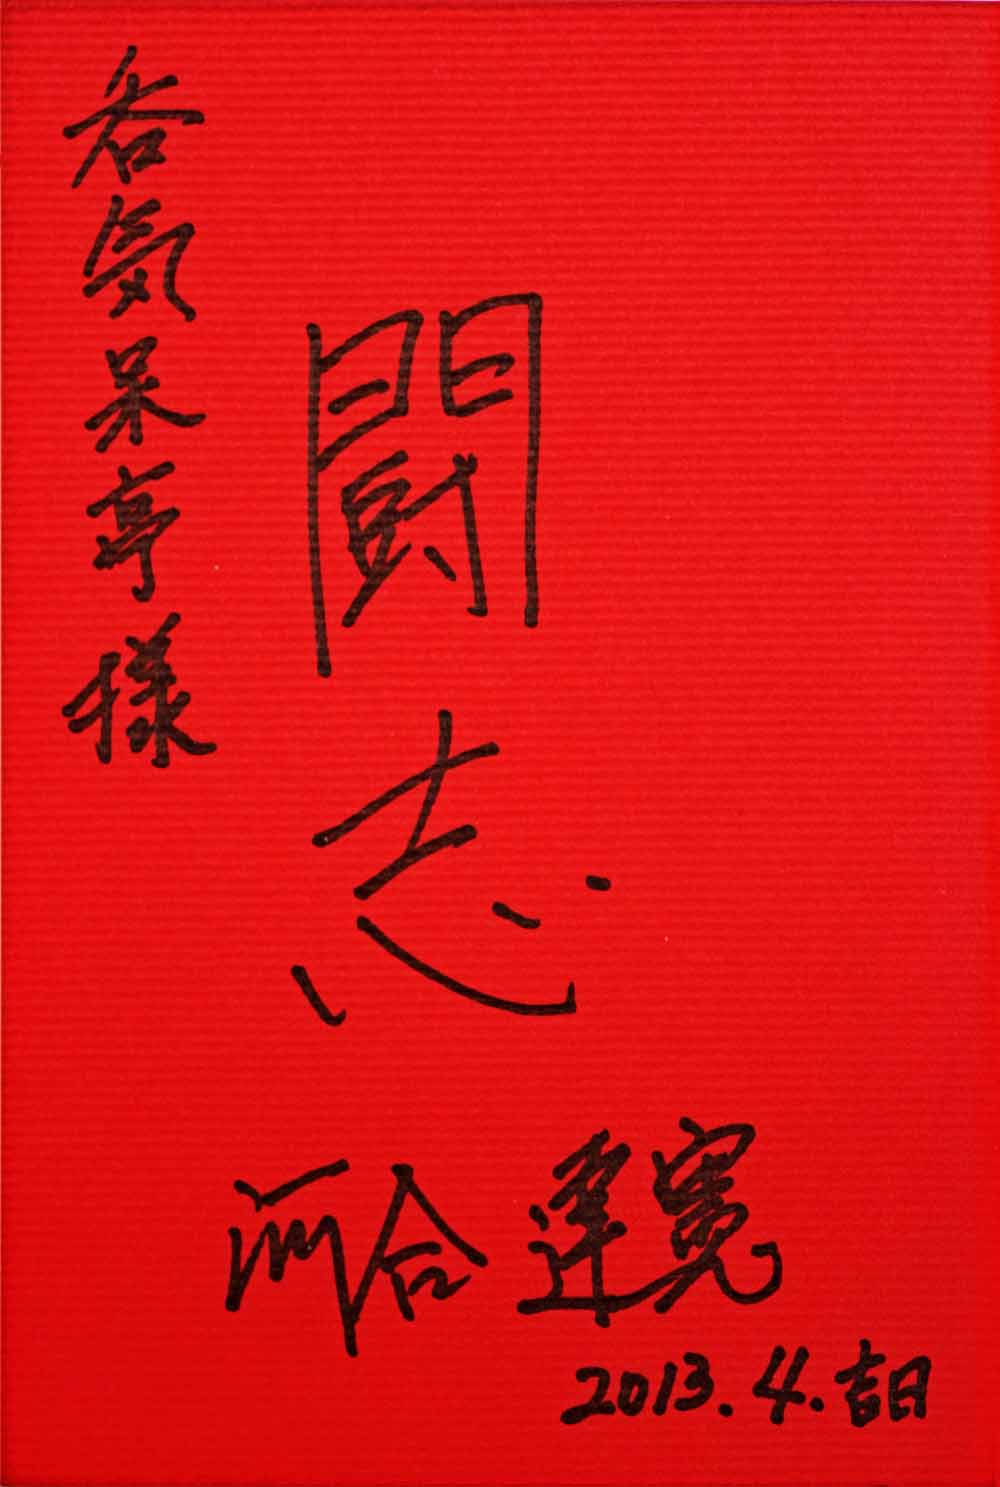 呑気呆亭様
闘志
河合達寛
2013.4.吉日